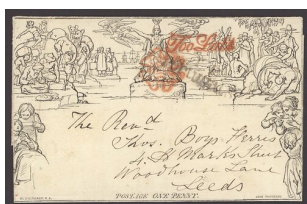 Too Late
The Revd
Thos. Boys Ferres
4. St Marks Street
Woodhouse Lane
Leeds
POSTAGE ONE PENNY.